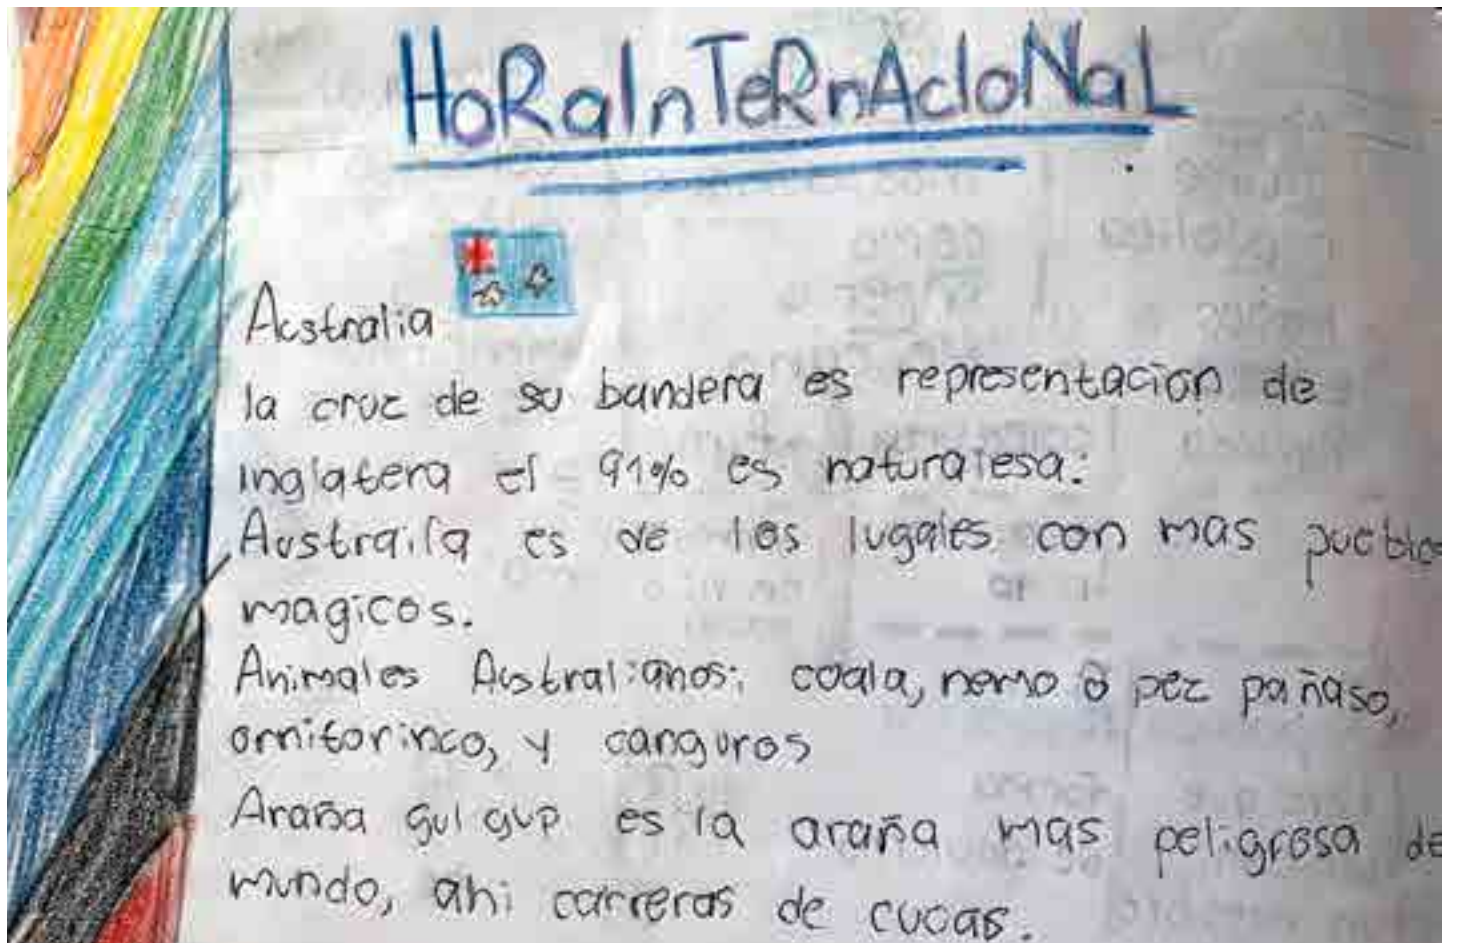 HoRaInTeRnAcIoNaL
Australia
la cruz de su bandera es representación de
inglatera el 91% es naturalesa.
Australia es de los lugales con mas pueblos
magicos.
Animales Australianos: coala, nemo ó pez pañaso,
ornitorinco, y canguros
Araña gulgup es la araña mas peligrosa de
mundo, ahi carreras de cucas.